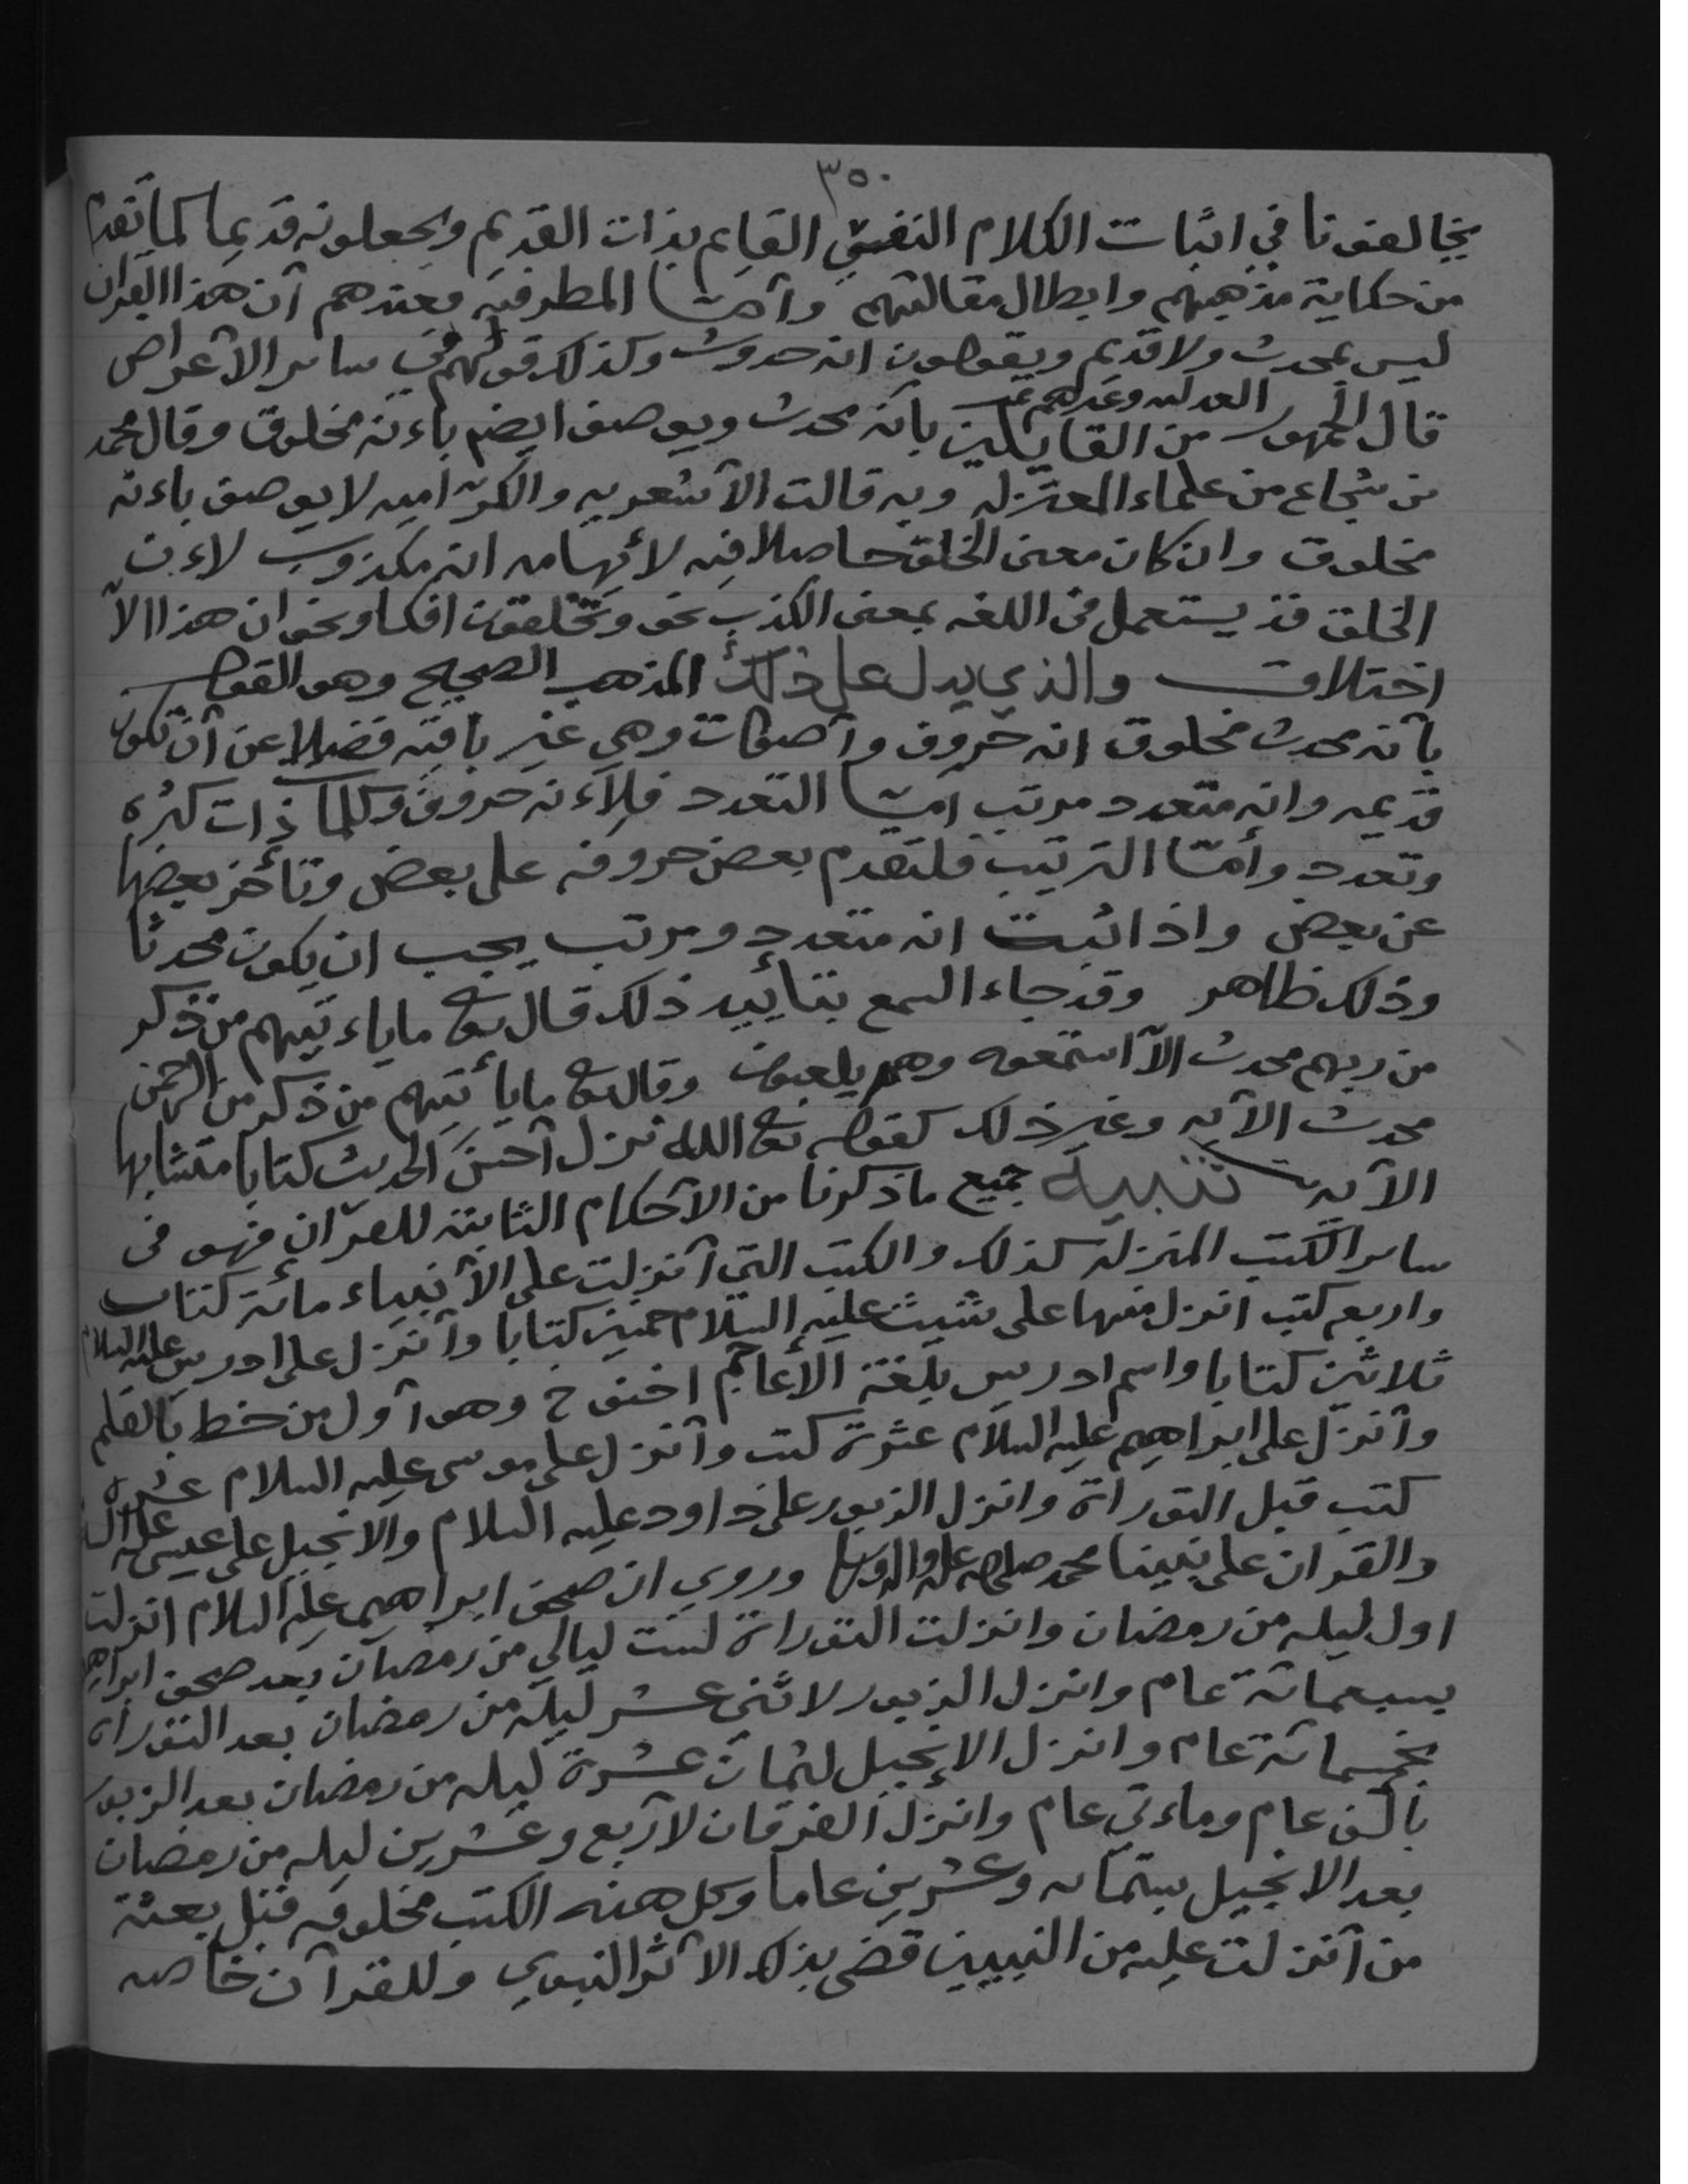 ٣٥٠
يخالفونا في اثبات الكلام النفسي القايم بذات القديم ويجعلونه قديما كما تقدم
من حكاية مذهبهم وابطال مقالتهم وأمّا المطرفيه فعندهم أن هذا القرآن
ليس بمحدث ولا قديم ويقولون انه حدوث وكذلك قولهم في ساير الأعراض
قال الجمهور من العدليه وغيرهم من القايلين بأنه محدث ويوصف ايضم باءنه مخلوق وقال محمد
بن شجاع من علماء المعتزله وبه قالت الأشعريه والكرّاميه لا يوصف باءنه
مخلوق وان كان معنى الخلق حاصلا فيه لأيهامه انه مكذوب لاءن
الخلق قد يستعمل في اللغه بمعنى الكذب نحو وتخلقون افكا ونحو ان هذا الاّ
اختلاق والذي يدل على ذلك المذهب الصحيح وهو القول
بأنه محدث مخلوق انه حروف وأصوات وهي غير باقيه فضلا عن أن تكون
قديمه وانه متعدد مرتب امّا التعدد فلاءنه حروف وكلما ذات كثره
وتعدد وأمّا الترتيب فلتقدم بعض حروفه على بعض وتأخر بعضها
عن بعض واذا ثبت انه متعدد ومرتب يجب ان يكون محدثا
وذلك ظاهر وقد جاء السمع بتأييد ذلك قال تع ما ياءتيهم من ذكر
من ربهم محدث الاّ استمعوه وهم يلعبون وقال تع ما يأتيهم من ذكر من الرحمن
محدث الآيه وغير ذلك كقوله تع الله نزل أحسن الحديث كتابا متشابها
الآيه تنبيه جميع ما ذكرنا من الأحكام الثابته للقرآن فهو في
ساير الكتب المنزله كذلك والكتب التي أنزلت على الأنبياء مائة كتاب
واربع كتب انزل منها على شيث عليه السلام خمسين كتابا وأنزل على ادريس عليه السلام
ثلاثين كتابا واسم ادريس بلغة الأعاجم اخنوخ وهو أول من خط بالقلم
وأنزل على ابراهيم عليه السلام عشرة كتب وأنزل على موسى عليه السلام عشرة
كتب قبل التوراة وانزل الزبور على داود عليه السلام والانجيل على عيسى عليه السلام
والقرآن على نبينا محمد صلى الله عليه واله وسلم وروي ان صحف ابراهيم عليه السلام انزلت
اول ليله من رمضان وانزلت التوراة لست ليالي من رمضان بعد صحف ابراهيم
بسبعمائة عام وانزل الزبور لاثني عشر ليله من رمضان بعد التوراة
بخمسمائة عام وانزل الإنجيل لثمان عشرة ليله من رمضان بعد الزبور
بألف عام وماءتي عام وانزل الفرقان لأربع وعشرين ليله من رمضان
بعد الانجيل بستمائه وعشرين عاما وكل هذه الكتب مخلوقه قبل بعثة
من أنزلت عليه من النبيين قضى بذلك الأثر النبوي وللقرآن خاصه